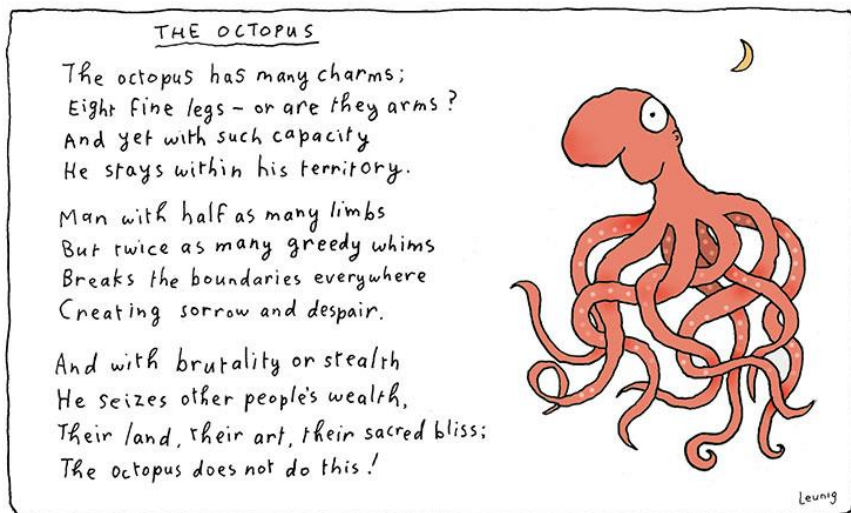 THE OCTOPUS
The octopus has many charms;
Eight fine legs – or are they arms?
And yet with such capacity
He stays within his territory.
Man with half as many limbs
But twice as many greedy whims
Breaks the boundaries everywhere
Creating sorrow and despair.
And with brutality or stealth
He seizes other people's wealth,
Their land, their art, their sacred bliss;
The octopus does not do this!
Leunig